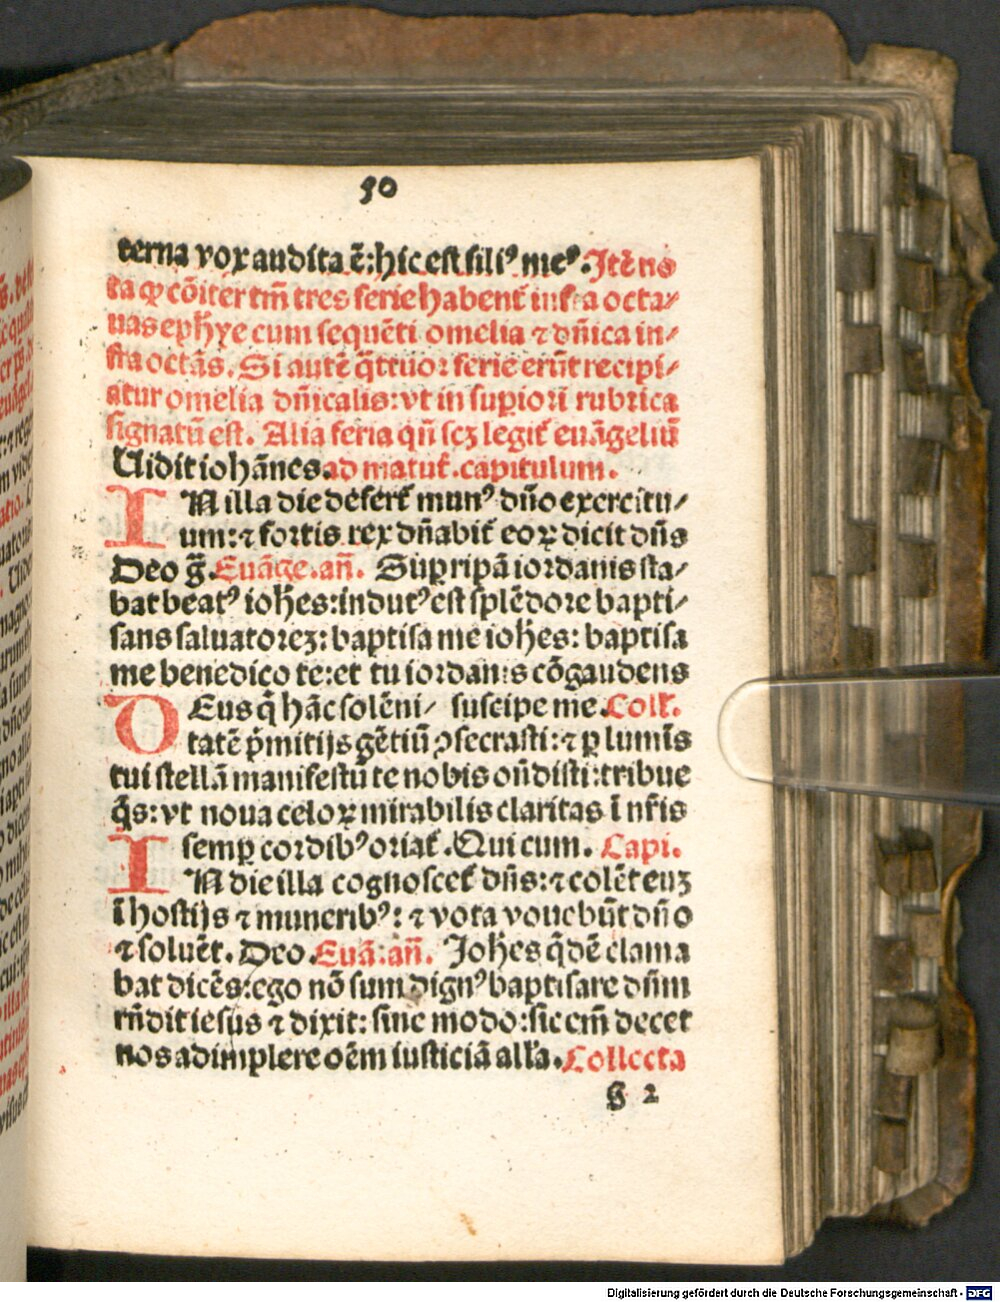 50
terna vox audita ē: hic est filiꝰ meꝰ. Itē no
ta ꝙ cōiter tm̄ tres ferie habent̄ infra octa⸗
uas eph̄ye cum sequēti omelia ⁊ dn̄ica in⸗
fra octās. Si autē q̄ttuor ferie erūt recipi⸗
atur omelia dn̄icalis: vt in supiori rubrica
signatū est. Alia feria qn̄ scꝫ legit̄ euāgeliū
Uidit iohānes. ad matut̄. capitulum.
IN illa die deferet̄ munꝰ dn̄o exercitu⸗
um: ⁊ fortis rex dn̄abit̄ eoꝝ dicit dn̄s
Deo gr̄. Euāge. an̄. Suꝑ ripā iordanis sta⸗
bat beatꝰ ioh̄es: indutꝰ est splēdore bapti⸗
sans saluatoreꝫ: baptisa me ioh̄es: baptisa
me benedico te: et tu iordanis cōgaudens
DEus q̄ hāc solēni⸗ suscipe me. Coll̄.
tatē p̄mitijs gētiū ꝯsecrasti: ⁊ ꝑ lumīs
tui stellā manifestū te nobis on̄disti: tribue
q̄s: vt noua celoꝝ mirabilis claritas ī nr̄is
semꝑ cordibꝰ oriat̄. Qui cum. Capi.
IN die illa cognoscet̄ dn̄s: ⁊ colēt euꝫ
ī hostijs ⁊ muneribꝰ: ⁊ vota vouebūt dn̄o
⁊ soluēt. Deo. Euā: an̄. Ioh̄es q̄dē clama
bat dicēs: ego nō sum dignꝰ baptisare dn̄m
rn̄dit iesus ⁊ dixit: sine modo: sic em̄ decet
nos adimplere oēm iusticiā all̄a. Collecta
g 2
Digitalisierung gefördert durch die Deutsche Forschungsgemeinschaft - DFG